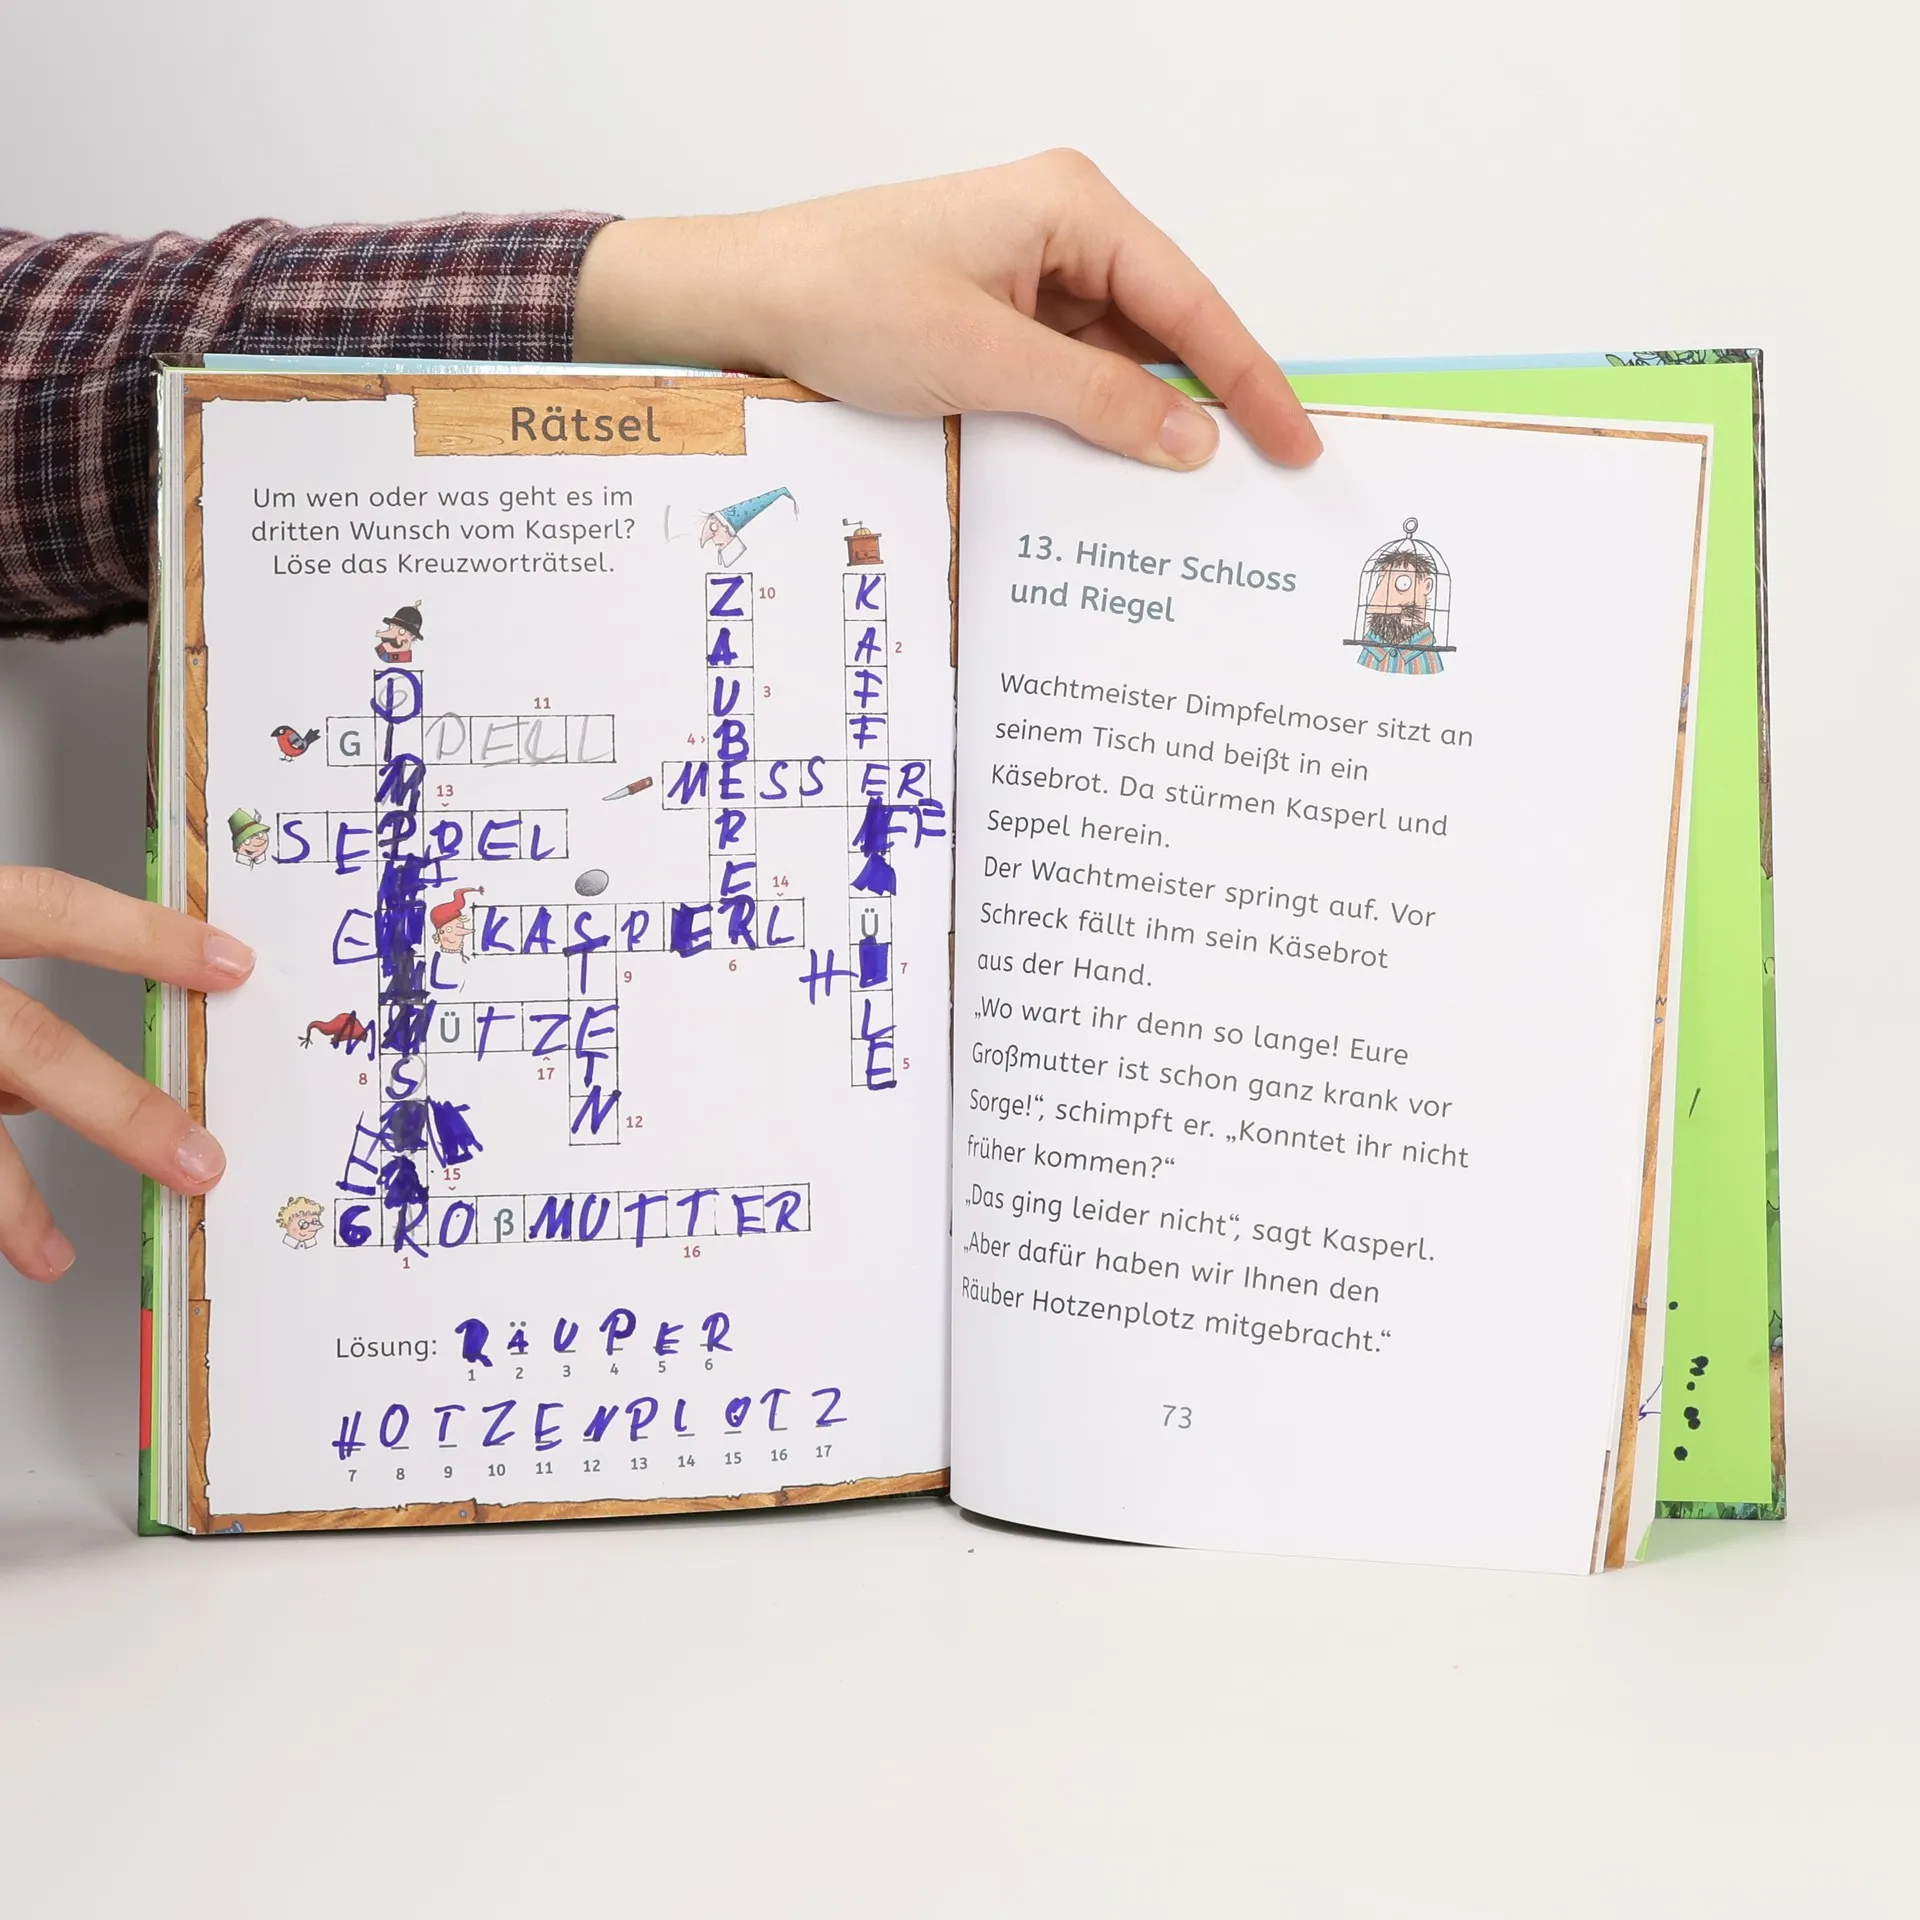 Rätsel
Um wen oder was geht es im
dritten Wunsch vom Kasperl?
Löse das Kreuzworträtsel.
ZAUBERER
10
3
4 ›
KAFFEE
Ü
H
LE
2
7
5
G
DELL
11
MESSER
SEPPEL
13
KASPERL
14
6
STEIN
9
12
M
ÜTZE
17
8
GROßMUTTER
15
16
1
Lösung: RÄUPER
1 2 3 4 5 6
HOTZENPLOTZ
7 8 9 10 11 12 13 14 15 16 17
13. Hinter Schloss
und Riegel
Wachtmeister Dimpfelmoser sitzt an
seinem Tisch und beißt in ein
Käsebrot. Da stürmen Kasperl und
Seppel herein.
Der Wachtmeister springt auf. Vor
Schreck fällt ihm sein Käsebrot
aus der Hand.
„Wo wart ihr denn so lange! Eure
Großmutter ist schon ganz krank vor
Sorge!“, schimpft er. „Konntet ihr nicht
früher kommen?“
„Das ging leider nicht“, sagt Kasperl.
„Aber dafür haben wir Ihnen den
Räuber Hotzenplotz mitgebracht.“
73